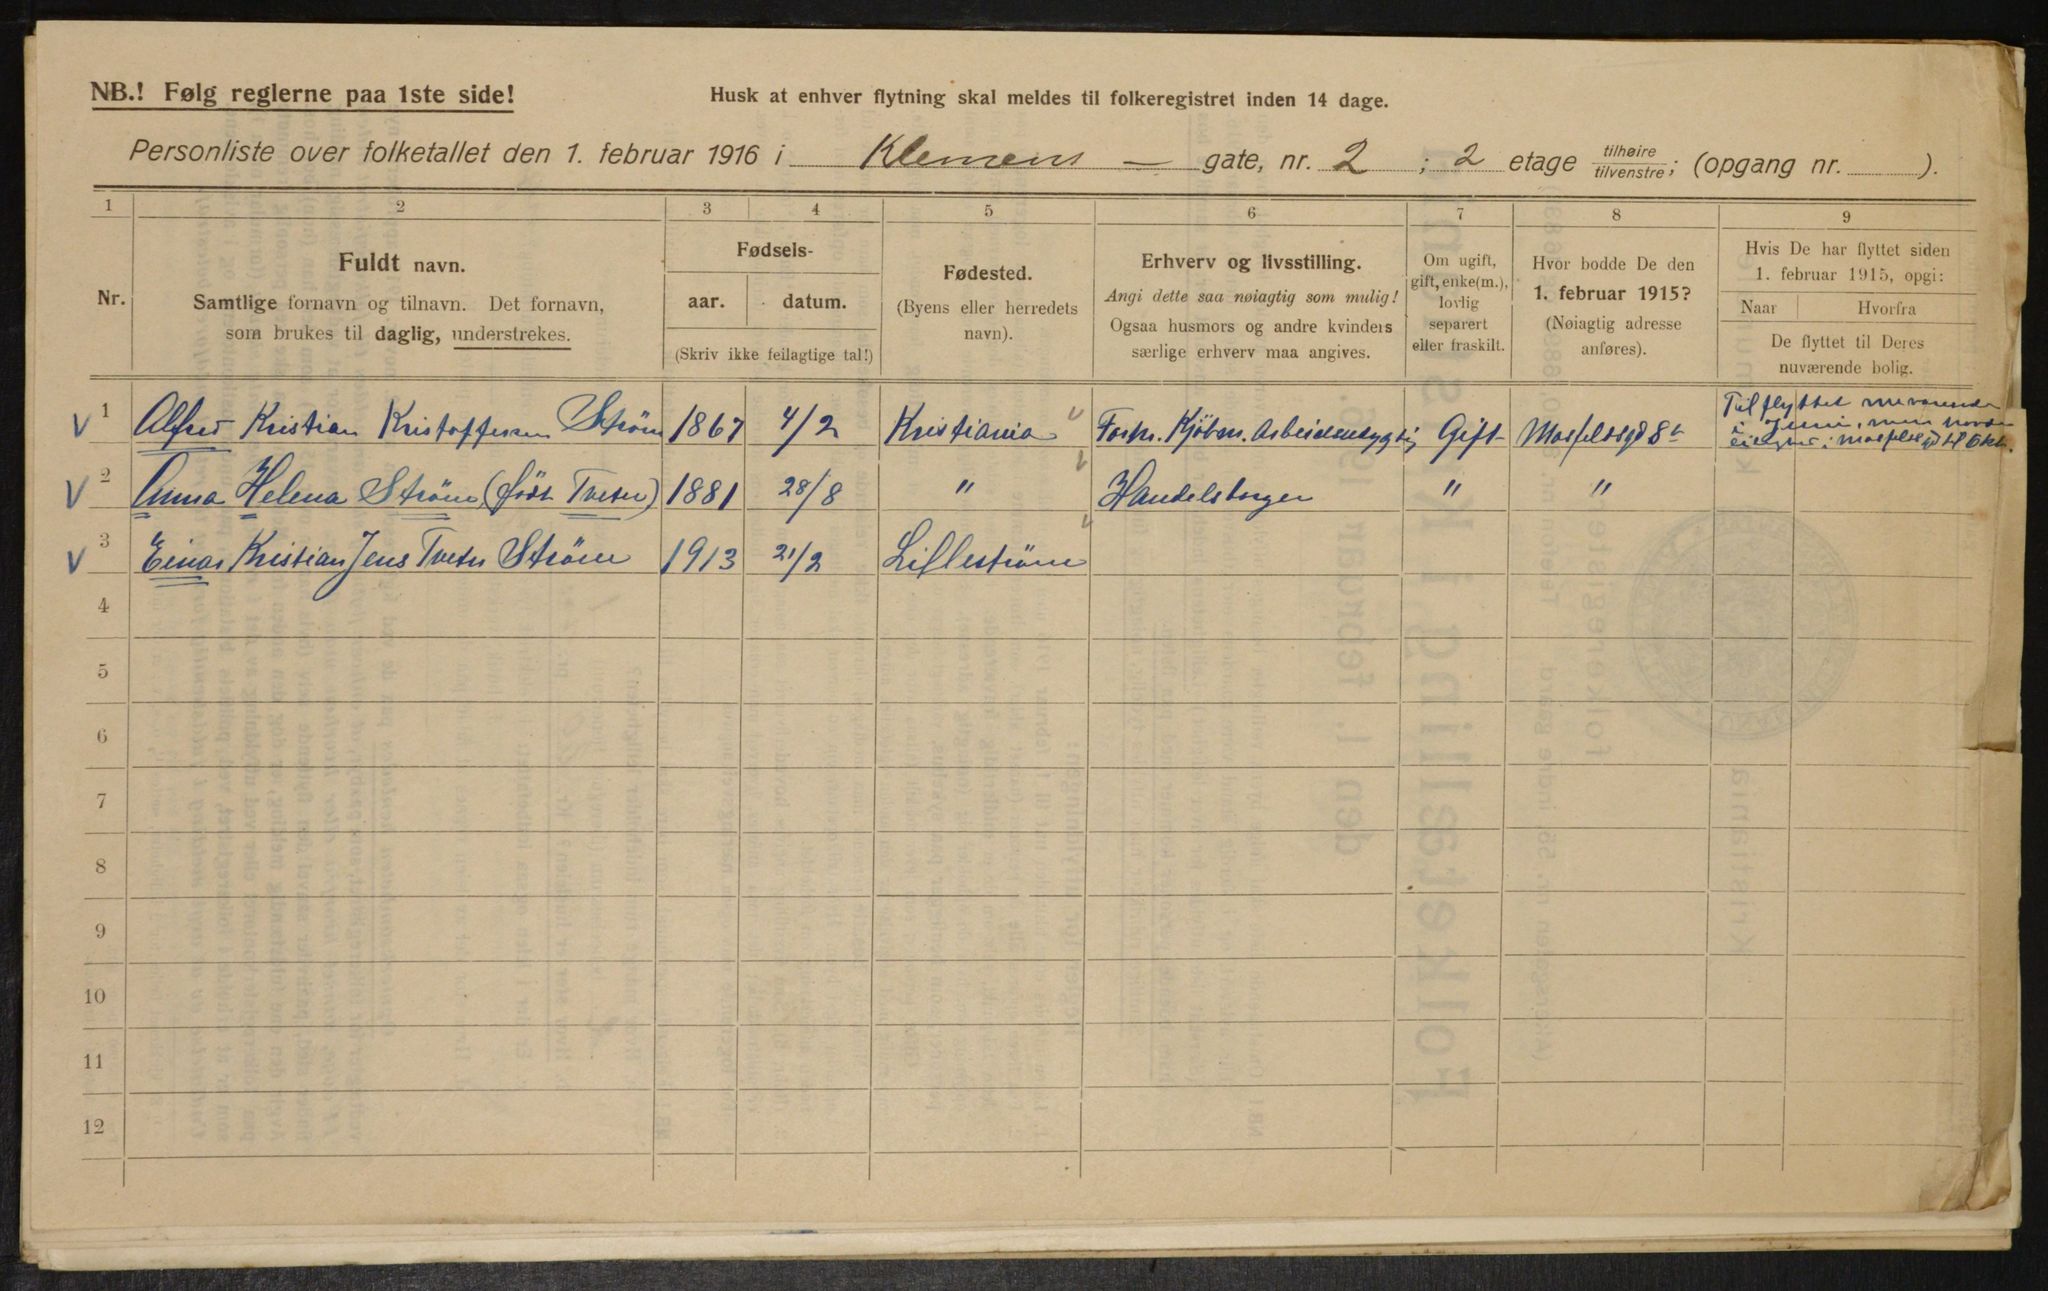 NB.! Følg reglerne paa 1ste side!
Husk at enhver flytning skal meldes til folkeregistret inden 14 dage.
Personliste over folketallet den 1. februar 1916 i Klemens — gate, nr. 2 ; 2 etage tilhøire/tilvenstre; (opgang nr. ).
1 2 3 4 5 6 7 8 9
Nr.
Fuldt navn.
Samtlige fornavn og tilnavn. Det fornavn,
som brukes til daglig, understrekes.
Fødsels-
aar. datum.
(Skriv ikke feilagtige tal!)
Fødested.
(Byens eller herredets
navn).
Erhverv og livsstilling.
Angi dette saa nøiagtig som mulig!
Ogsaa husmors og andre kvinders
særlige erhverv maa angives.
Om ugift,
gift, enke(m.),
lovlig
separert
eller fraskilt.
Hvor bodde De den
1. februar 1915?
(Nøiagtig adresse
anføres).
Hvis De har flyttet siden
1. februar 1915, opgi:
Naar Hvorfra
De flyttet til Deres
nuværende bolig.
V 1 Alfred Kristian Kristoffersen Strøm 1867 4/2 Kristiania Forh. Kjøbm. Arbeidsudygtig Gift
Tilflyttet nuværende
i Juni, men
V 2 Anna Helena Strøm (født Tveter) 1881 28/8 " Handelsborger " "
V 3 Einar Kristian Jens Tveter Strøm 1913 21/2 Lillestrøm
4
5
6
7
8
9
10
11
12